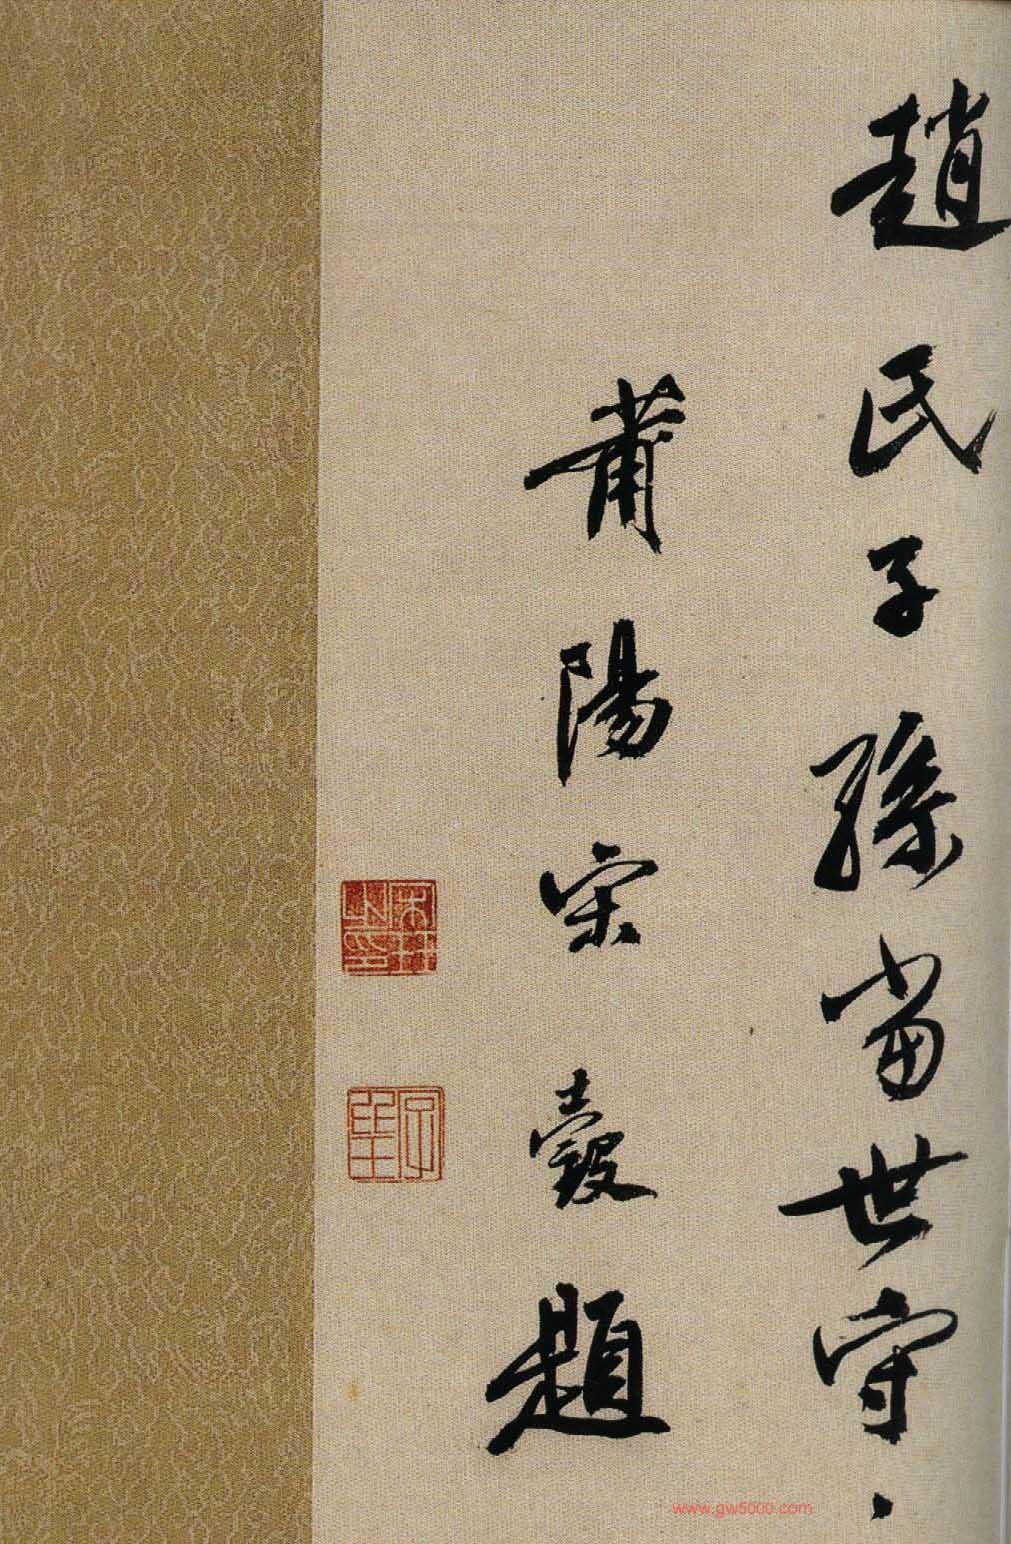 趙氏子孫當世守
莆陽宋瑴題
宋玨之印
www.gw5000.com